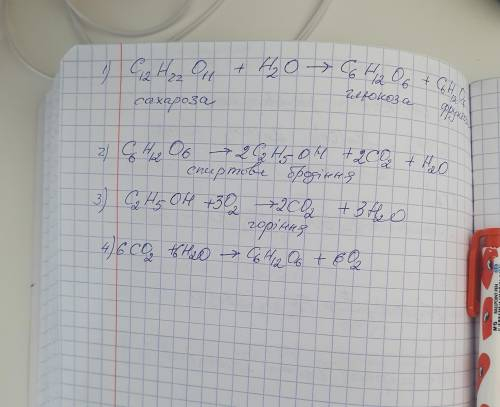 1) C12H22O11 + H2O → C6H12O6 + C6H12O6
сахароза глюкоза
2) C6H12O6 → 2C2H5OH + 2CO2 + H2O
спиртове бродіння
3) C2H5OH + 3O2 → 2CO2 + 3H2O
горіння
4) 6CO2 + 6H2O → C6H12O6 + 6O2